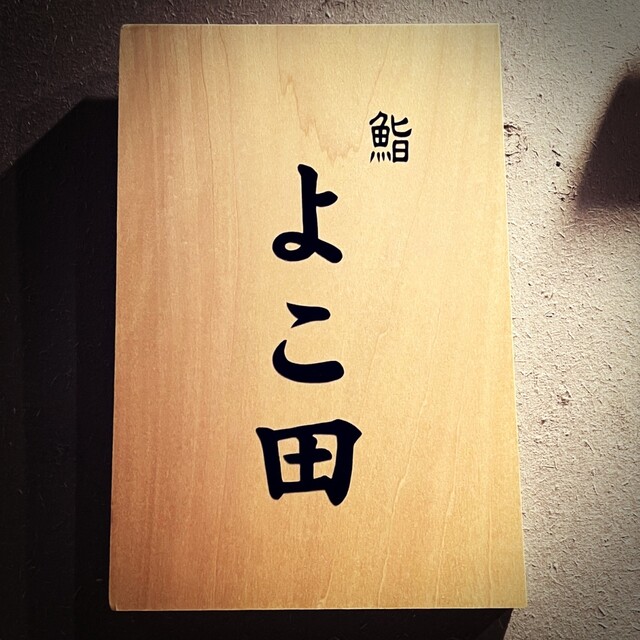 鮨
よこ田